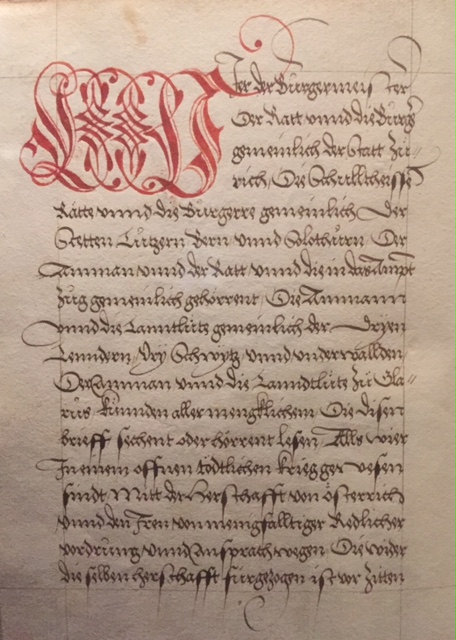 Wier der Burgermeister
Der Ratt vnnd die Burger
gemeinlich der Statt Zü-
rich, Die Schulltheissen
Rätte vnnd die Burgerre gemeinlich Der
Stetten Lutzern Bern vnnd Solothurn Der
Amman vnnd der Ratt vnnd die in das Ampt
Zug gemeinlich gehörrent, Die Ammann
vnnd die Lanntlütt gemeinlich der Dryen
Lenndern, Vry Schwytz vnnd vnderwallden,
Der Amman vnnd die Lanndtlütte zu Gla-
rus, kunnden aller mengklichem Die disen
brieff sechent oder hörrent lesen, Alls wier
In einem offnen tödtlichen krieg gewesen
sindt Mitt der Herschafft von österrich
vnnd den Iren von menigfalltiger Redlicher
vordrung vnnd Ansprach wegen Die wider
die selben herschafft fürgezogen ist vor Zitten